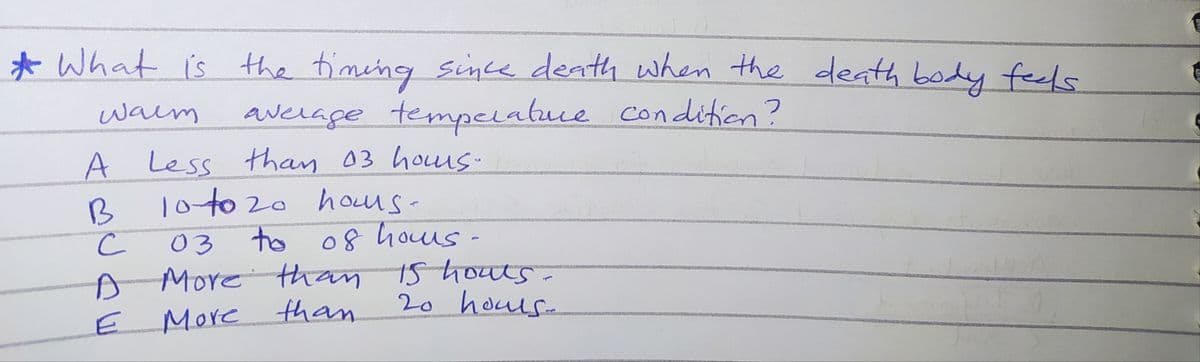 * What is the timing since death when the death body feels
warm average temperature condition?
A Less than 03 hours.
B 10 to 20 hours.
C 03 to 08 hours.
D More than 15 hours.
E More than 20 hours.